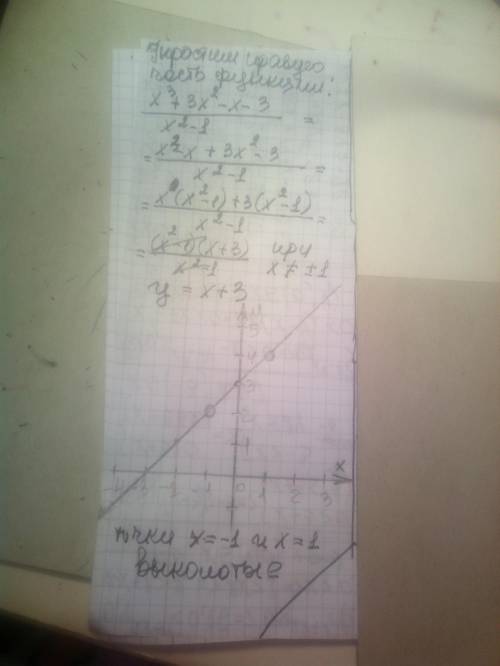 Упростим правую
часть функции:
x³+3x²-x-3
x²-1 =
= x³-x+3x²-3
x²-1 =
= x(x²-1)+3(x²-1)
x²-1 =
= (x²-1)(x+3) при
x²-1 x≠±1
y = x+3
y
5
4
3
2
1
x
-4 -3 -2 -1 0 1 2 3
точки x=-1 и x=1
выколотые